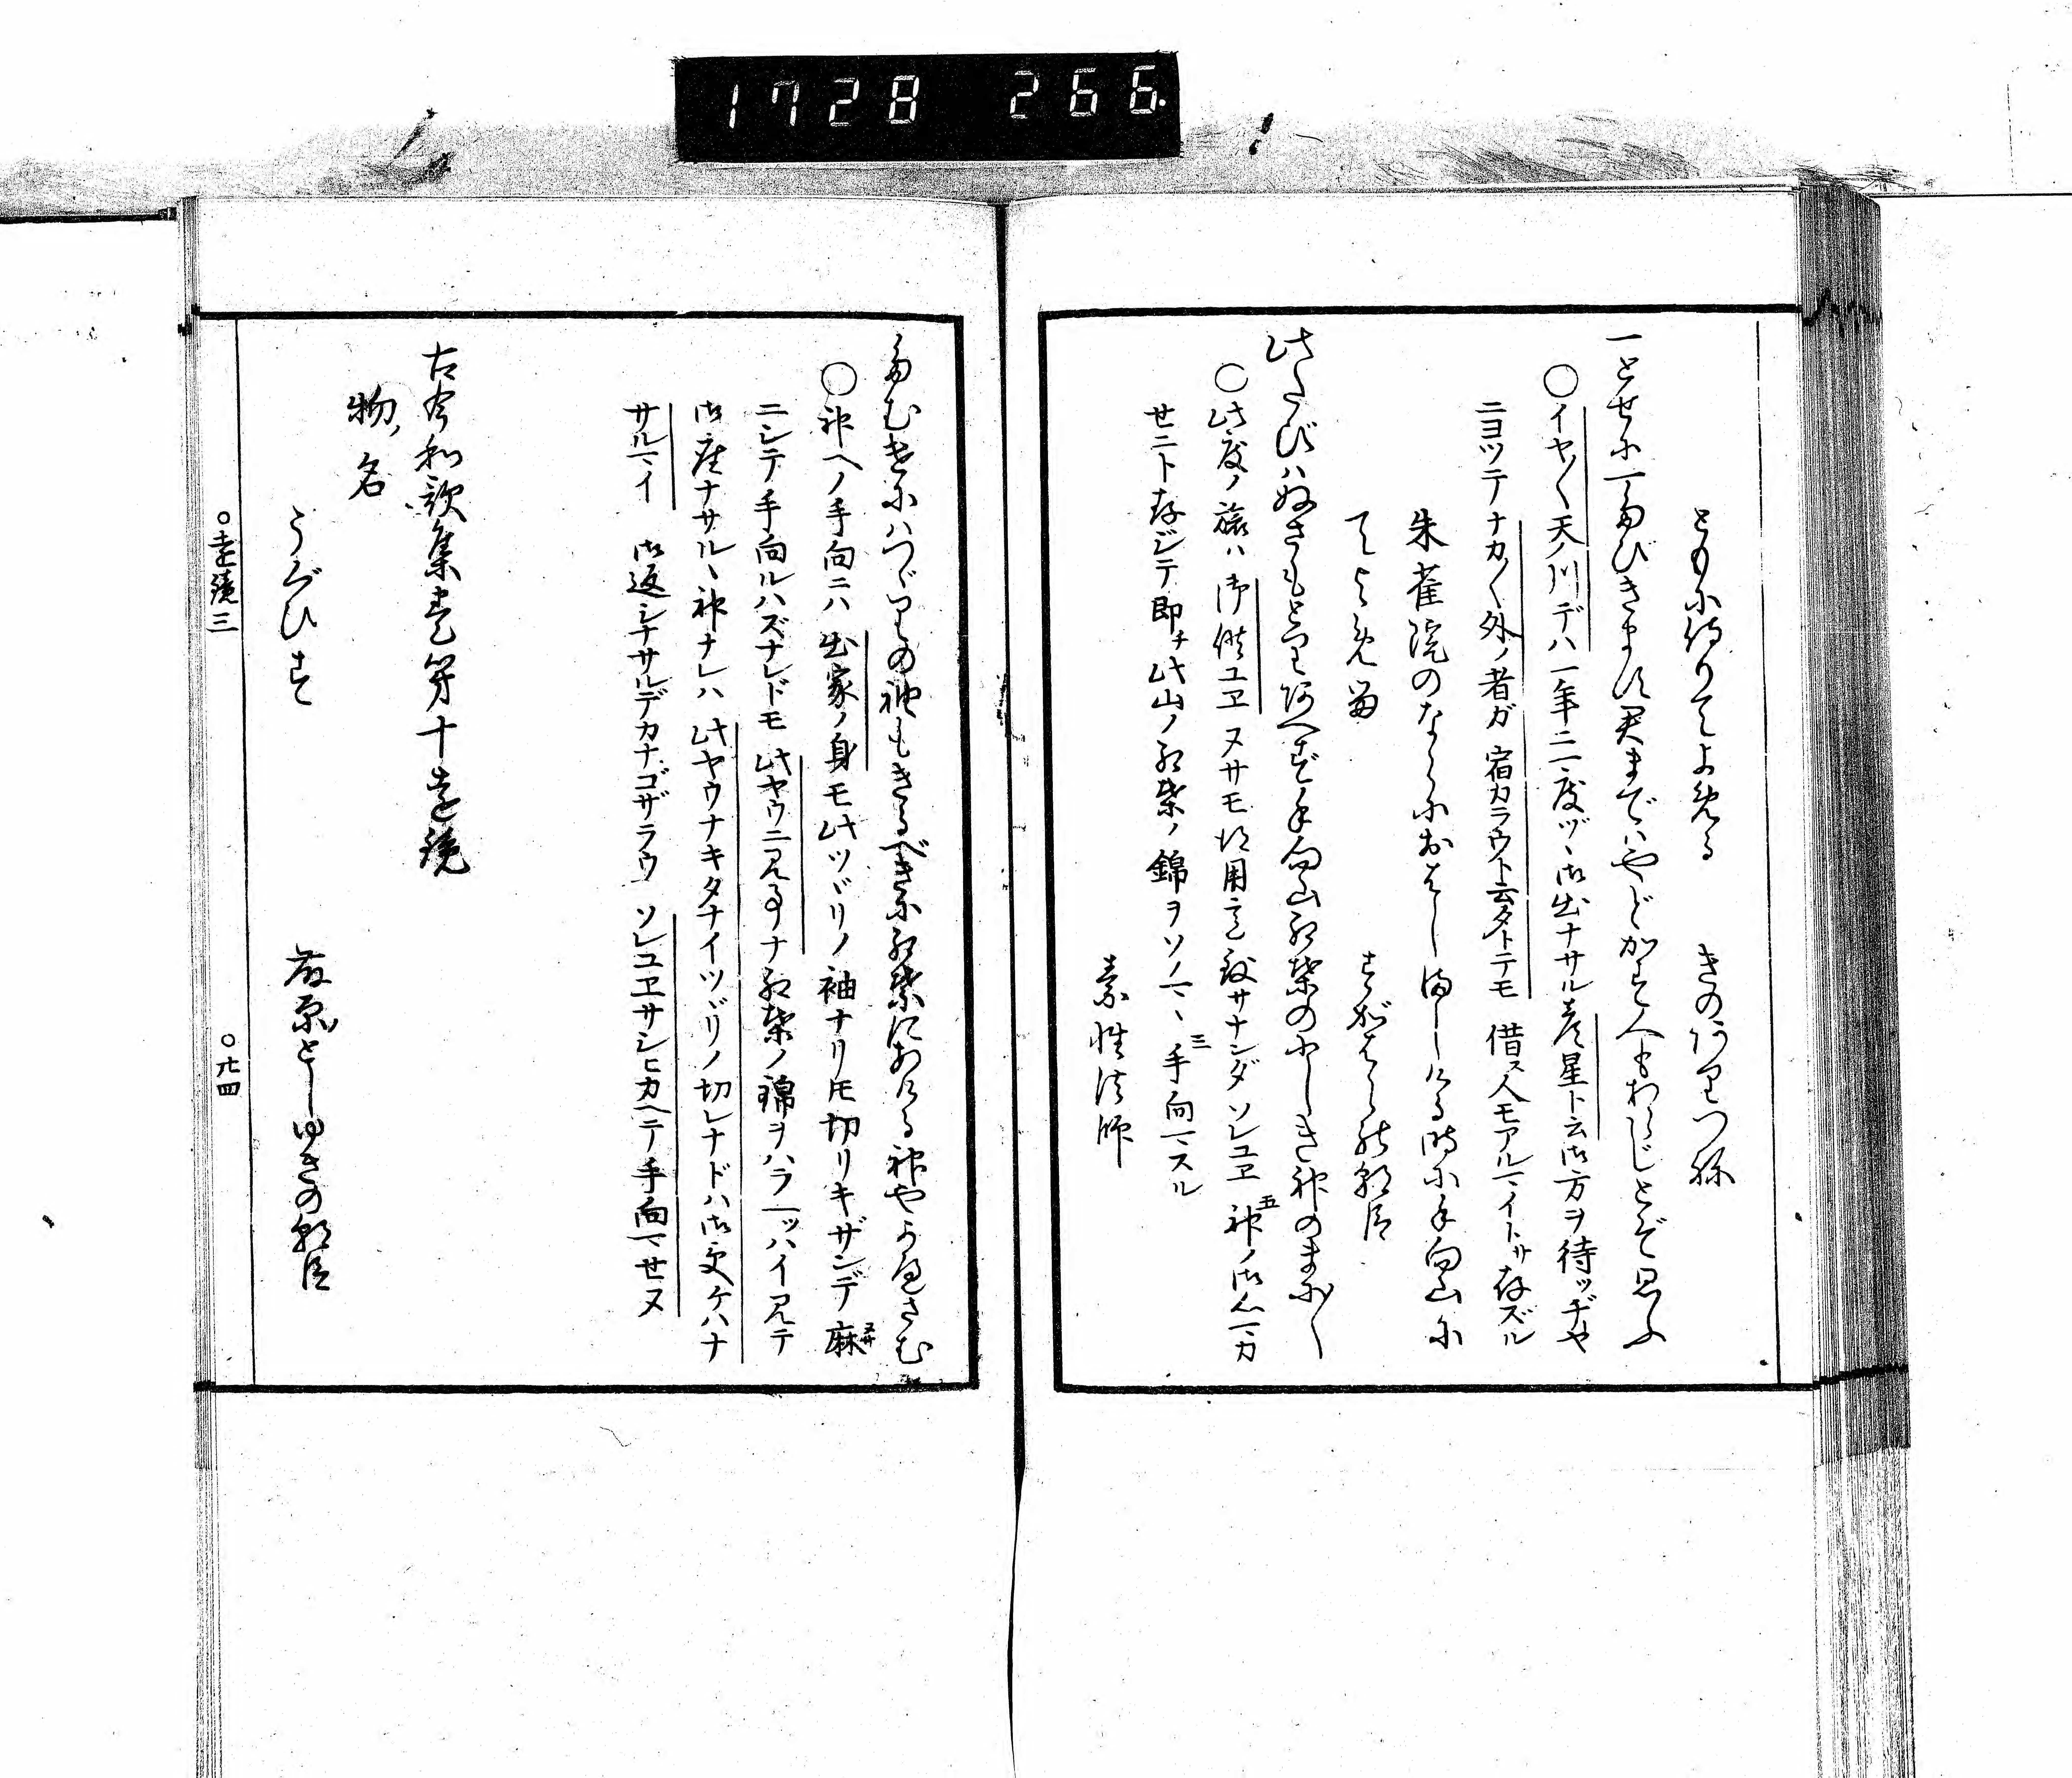 1728 266
とも小侍りてよめる　きのありつね
一とせに一たびきます君まてばやどかす人もあらじとぞ思ふ
○イヤ〱天ノ川デハ一年ニ一度ヅヽ御出ナサル彦星ト云御方ヲ待ツヂヤ
ニヨツテナカ〱外ノ者ガ宿カラウト云タトテモ借ス人モアルマイトサ存ズル
朱雀院のならにおはしましける時に手向山に
てよめる　すがはらの朝臣
此たびはぬさもとりあへず手向山紅葉のにしき神のまに〱
○此度ノ旅ハ御供ユヱヌサモ得用意致サナンダソレユヱ神ノ御心マカ
セニト存ジテ即チ此山ノ紅葉ノ錦ヲソノマヽ手向マスル
素性法師
たむけにはつゞりの袖もきるべきに紅葉にあける神やかへさむ
○神ヘノ手向ニハ出家ノ身モ此ツヾリノ袖ナリトモ切リキザンデ麻
ニシテ手向ルハズナレドモ此ヤウニ見事ナ紅葉ノ錦ヲハラ一ッハイ見テ
御座ナサルヽ神ナレハ此ヤウナキタナイツヾリノ切レナドハ御受ケハナ
サルマイ　御返シナサルデカナゴザラウ　ソレユヱサシヒカヘテ手向マセヌ
古今和歌集巻第十遠鏡
物ノ名
うぐひす　藤原としゆきの朝臣
○遠鏡三　○廿四